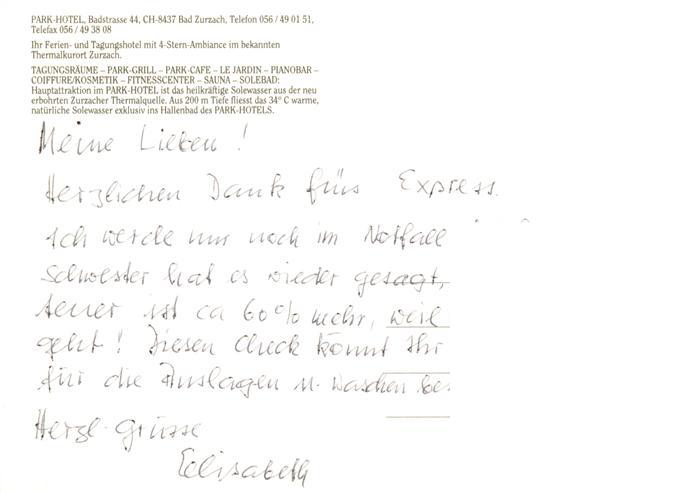 PARK-HOTEL, Badstrasse 44, CH-8437 Bad Zurzach, Telefon 056 / 49 01 51,
Telefax 056 / 49 38 08
Ihr Ferien- und Tagungshotel mit 4-Stern-Ambiance im bekannten
Thermalkurort Zurzach.
TAGUNGSRÄUME – PARK-GRILL – PARK-CAFE – LE JARDIN – PIANOBAR –
COIFFURE/KOSMETIK – FITNESSCENTER – SAUNA – SOLEBAD:
Hauptattraktion im PARK-HOTEL ist das heilkräftige Solewasser aus der neu
erbohrten Zurzacher Thermalquelle. Aus 200 m Tiefe fliesst das 34° C warme,
natürliche Solewasser exklusiv ins Hallenbad des PARK-HOTELS.
Meine Lieben !
Herzlichen Dank fürs Express.
Ich werde nur noch im Notfall
Schwester hat es wieder gesagt,
teuer ist ca 60% mehr, weil
geht ! Diesen Check könnt Ihr
für die Auslagen u. waschen
Herzl. Grüsse
Elisabeth